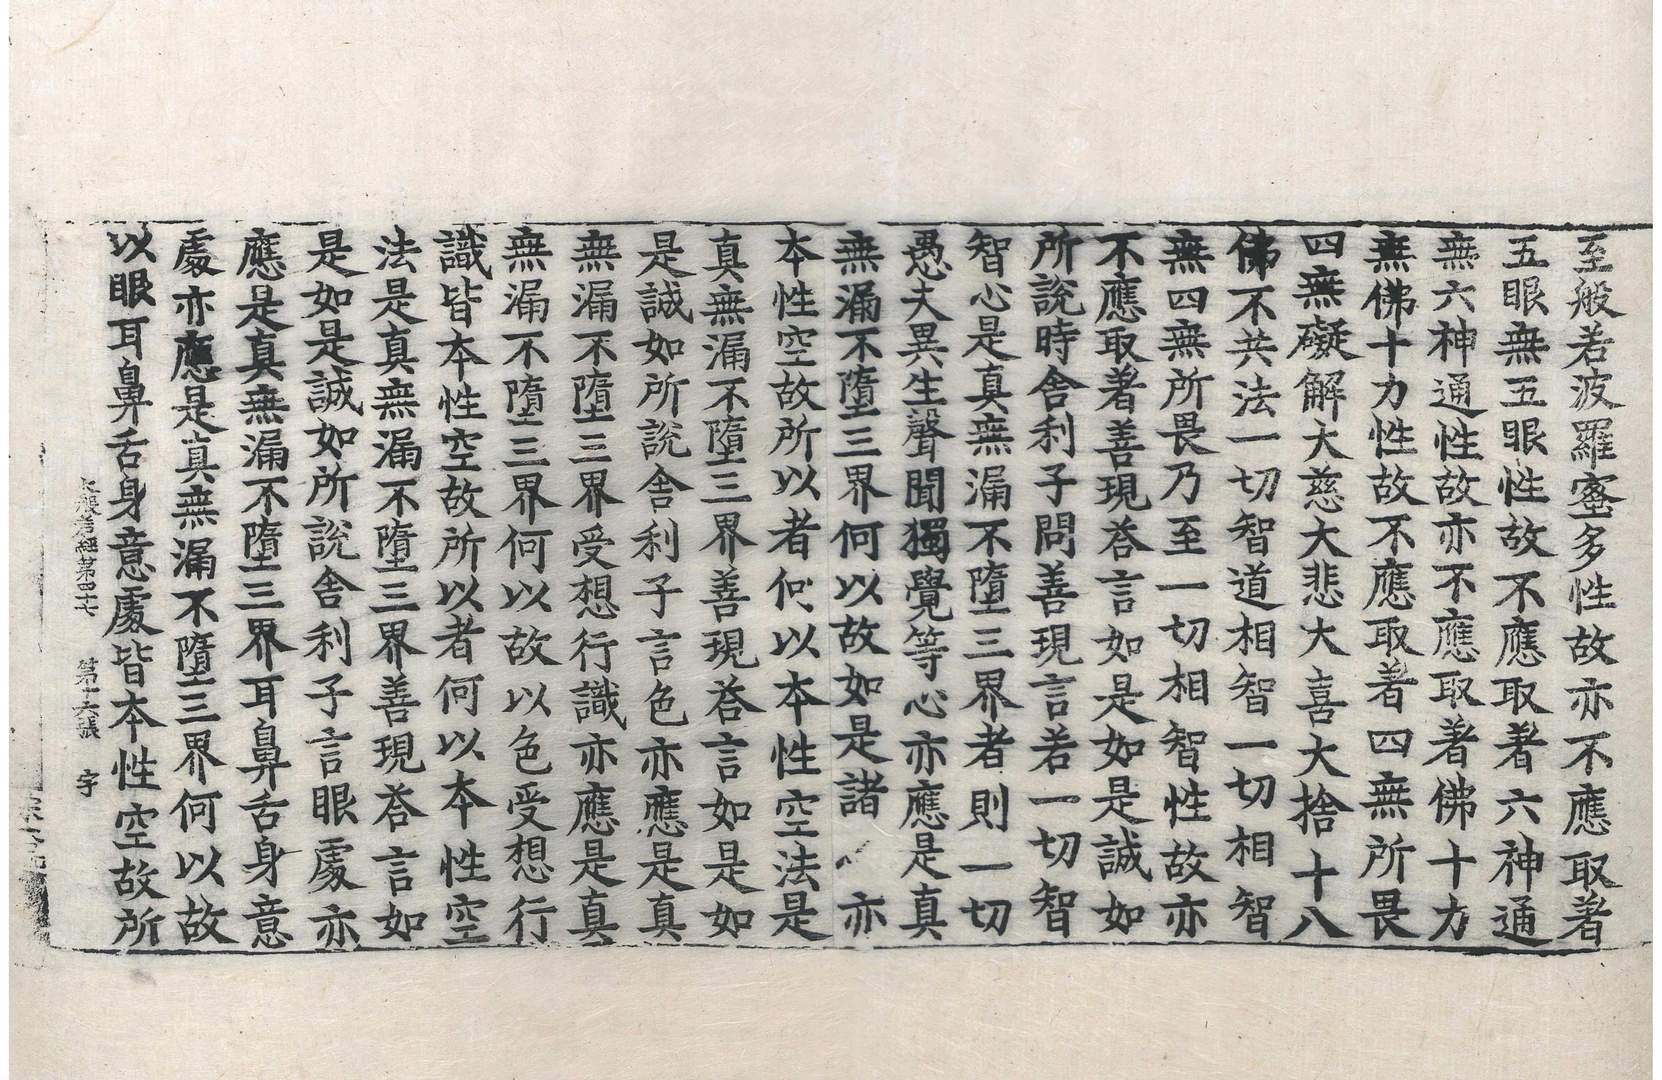 至般若波羅蜜多性故亦不應取著
五眼無五眼性故不應取著六神通
無六神通性故亦不應取著佛十力
無佛十力性故不應取著四無所畏
四無礙解大慈大悲大喜大捨十八
佛不共法一切智道相智一切相智
無四無所畏乃至一切相智性故亦
不應取著善現荅言如是如是誠如
所說時舍利子問善現言若一切智
智心是真無漏不墮三界者則一切
愚夫異生聲聞獨覺等心亦應是真
無漏不墮三界何以故如是諸 亦
本性空故所以者何以本性空法是
真無漏不墮三界善現荅言如是如
是誠如所說舍利子言色亦應是真
無漏不墮三界受想行識亦應是真
無漏不墮三界何以故以色受想行
識皆本性空故所以者何以本性空
法是真無漏不墮三界善現荅言如
是如是誠如所說舍利子言眼處亦
應是真無漏不墮三界耳鼻舌身意
處亦應是真無漏不墮三界何以故
以眼耳鼻舌身意處皆本性空故所
大般若經第四十七 第十六張 宇